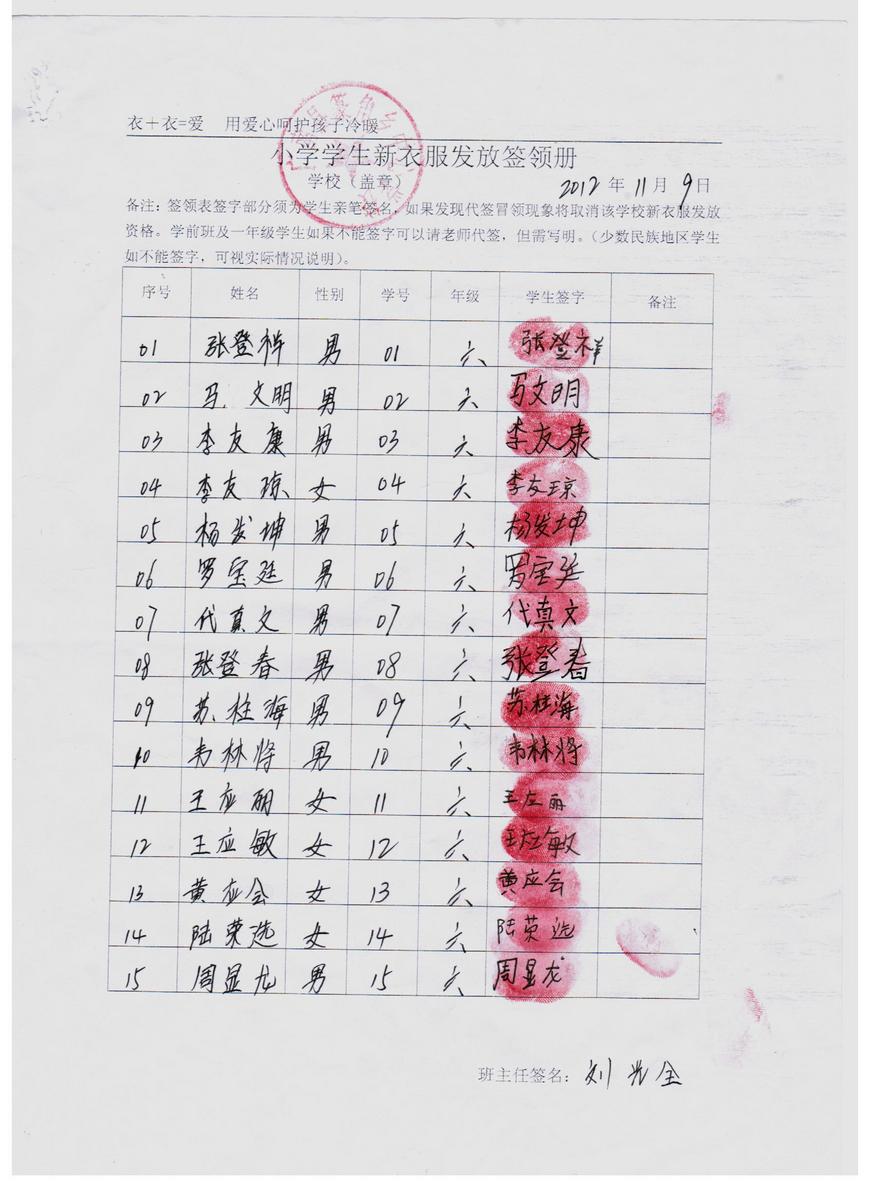 衣＋衣=爱 用爱心呵护孩子冷暖
小学学生新衣服发放签领册
学校（盖章）
2012 年 11 月 9 日
备注：签领表签字部分须为学生亲笔签名，如果发现代签冒领现象将取消该学校新衣服发放
资格。学前班及一年级学生如果不能签字可以请老师代签，但需写明。（少数民族地区学生
如不能签字，可视实际情况说明）。
序号 姓名 性别 学号 年级 学生签字 备注
01 张登祥 男 01 六 张登祥
02 马文明 男 02 六 马文明
03 李友康 男 03 六 李友康
04 李友琼 女 04 六 李友琼
05 杨发坤 男 05 六 杨发坤
06 罗宝廷 男 06 六 罗宝廷
07 代真文 男 07 六 代真文
08 张登春 男 08 六 张登春
09 苏桂海 男 09 六 苏桂海
10 韦林将 男 10 六 韦林将
11 王应丽 女 11 六 王应丽
12 王应敏 女 12 六 王应敏
13 黄应会 女 13 六 黄应会
14 陆荣选 女 14 六 陆荣选
15 周显龙 男 15 六 周显龙
班主任签名：刘光全